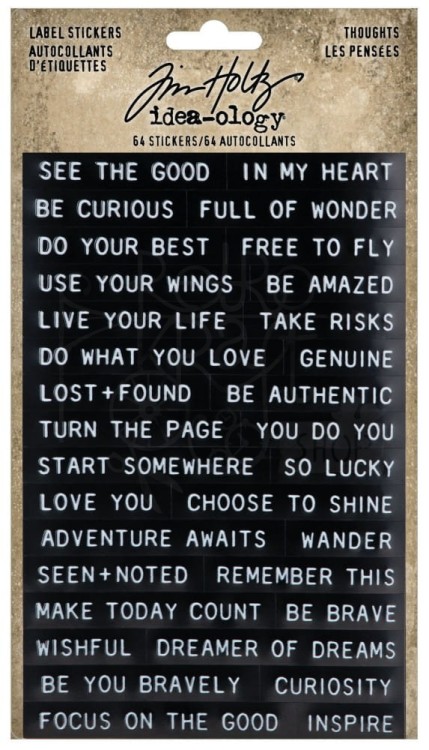 LABEL STICKERS
AUTOCOLLANTS
D'ÉTIQUETTES
THOUGHTS
LES PENSÉES
Tim Holtz
idea-ology
64 STICKERS/64 AUTOCOLLANTS
SEE THE GOOD IN MY HEART
BE CURIOUS FULL OF WONDER
DO YOUR BEST FREE TO FLY
USE YOUR WINGS BE AMAZED
LIVE YOUR LIFE TAKE RISKS
DO WHAT YOU LOVE GENUINE
LOST+FOUND BE AUTHENTIC
TURN THE PAGE YOU DO YOU
START SOMEWHERE SO LUCKY
LOVE YOU CHOOSE TO SHINE
ADVENTURE AWAITS WANDER
SEEN+NOTED REMEMBER THIS
MAKE TODAY COUNT BE BRAVE
WISHFUL DREAMER OF DREAMS
BE YOU BRAVELY CURIOSITY
FOCUS ON THE GOOD INSPIRE